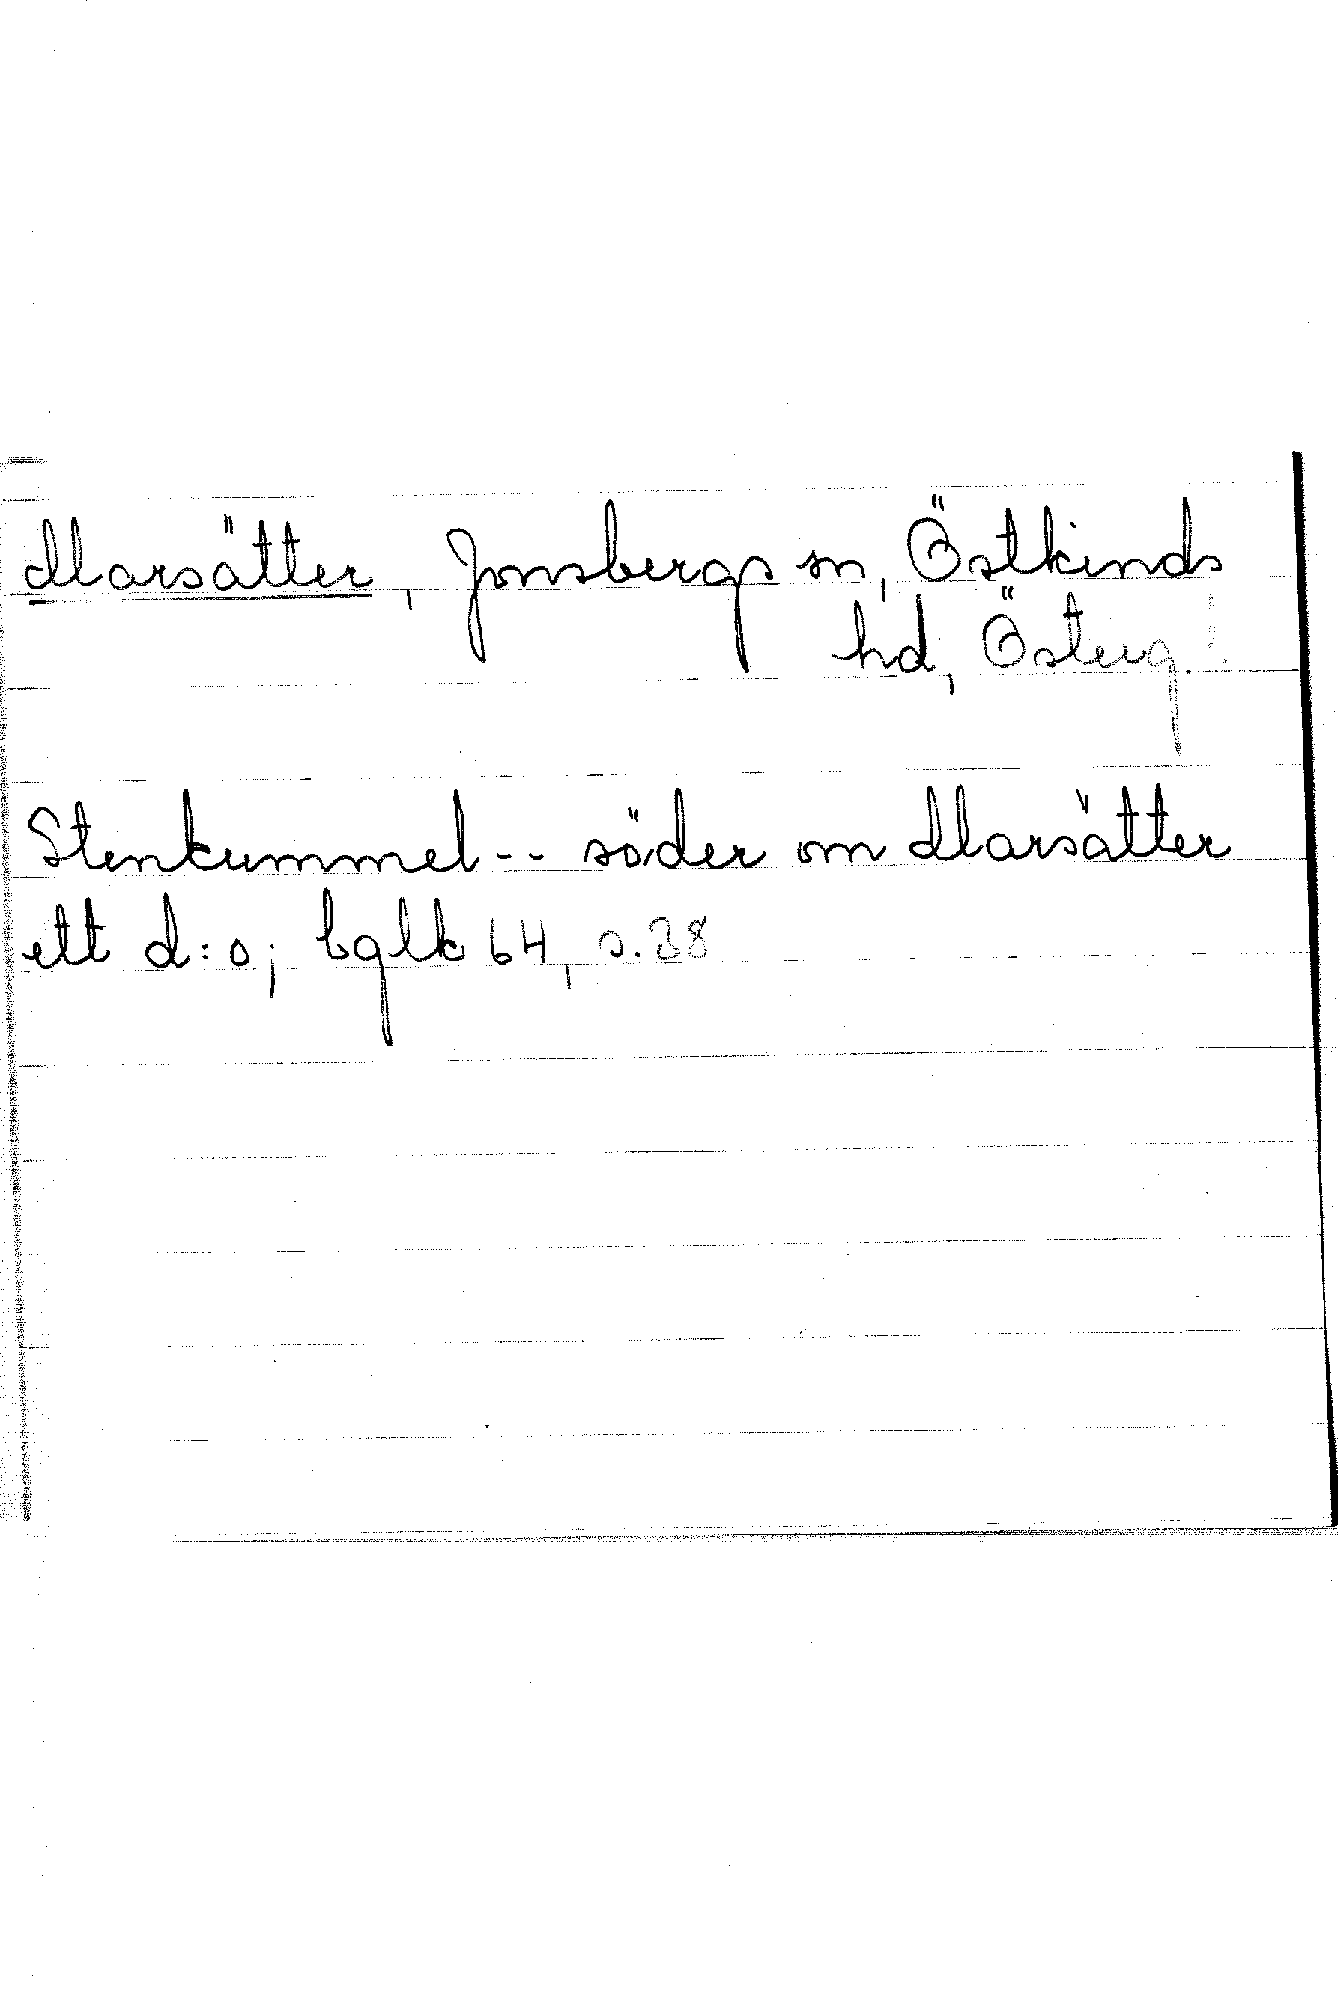 Marsätter, Jonsbergs sn, Östkinds
hd, Österg.
Stenkummel -- söder om Marsätter
ett d:o; bglk 64, s. 38